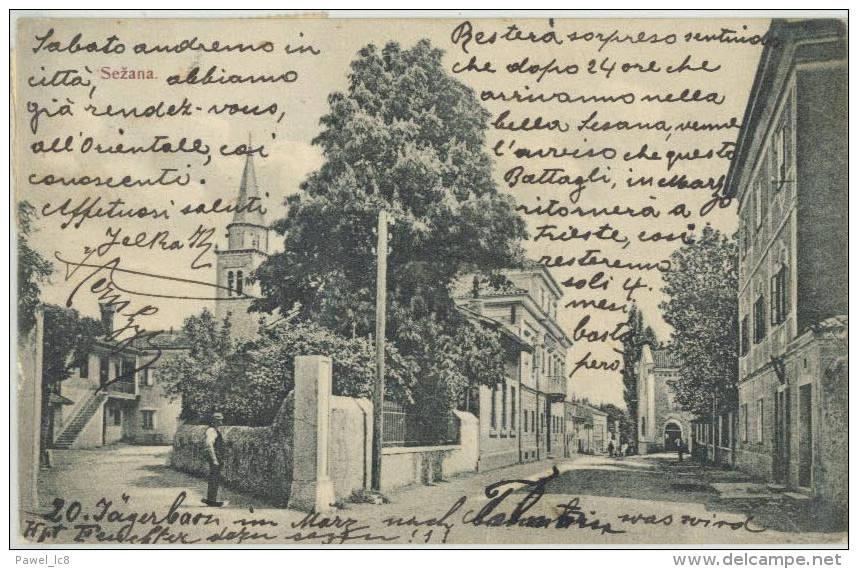 Sabato andremo in
città, abbiamo
già rendez-vous,
all'Orientale, così
conoscenti.
Affettuosi saluti
Jelka
Sežana.
Resterà sorpreso sentindo
che dopo 24 ore che
arrivanno nella
bella Sesana, venne
l'avviso che questo
Battagli, in Marzo
ritornerà a
Trieste, così
resteremo
soli 4.
mesi
basta
però.
20. Jägerbaon, im März nach was wird
Feuchter dazu sagen !!!
Pawel_lc8